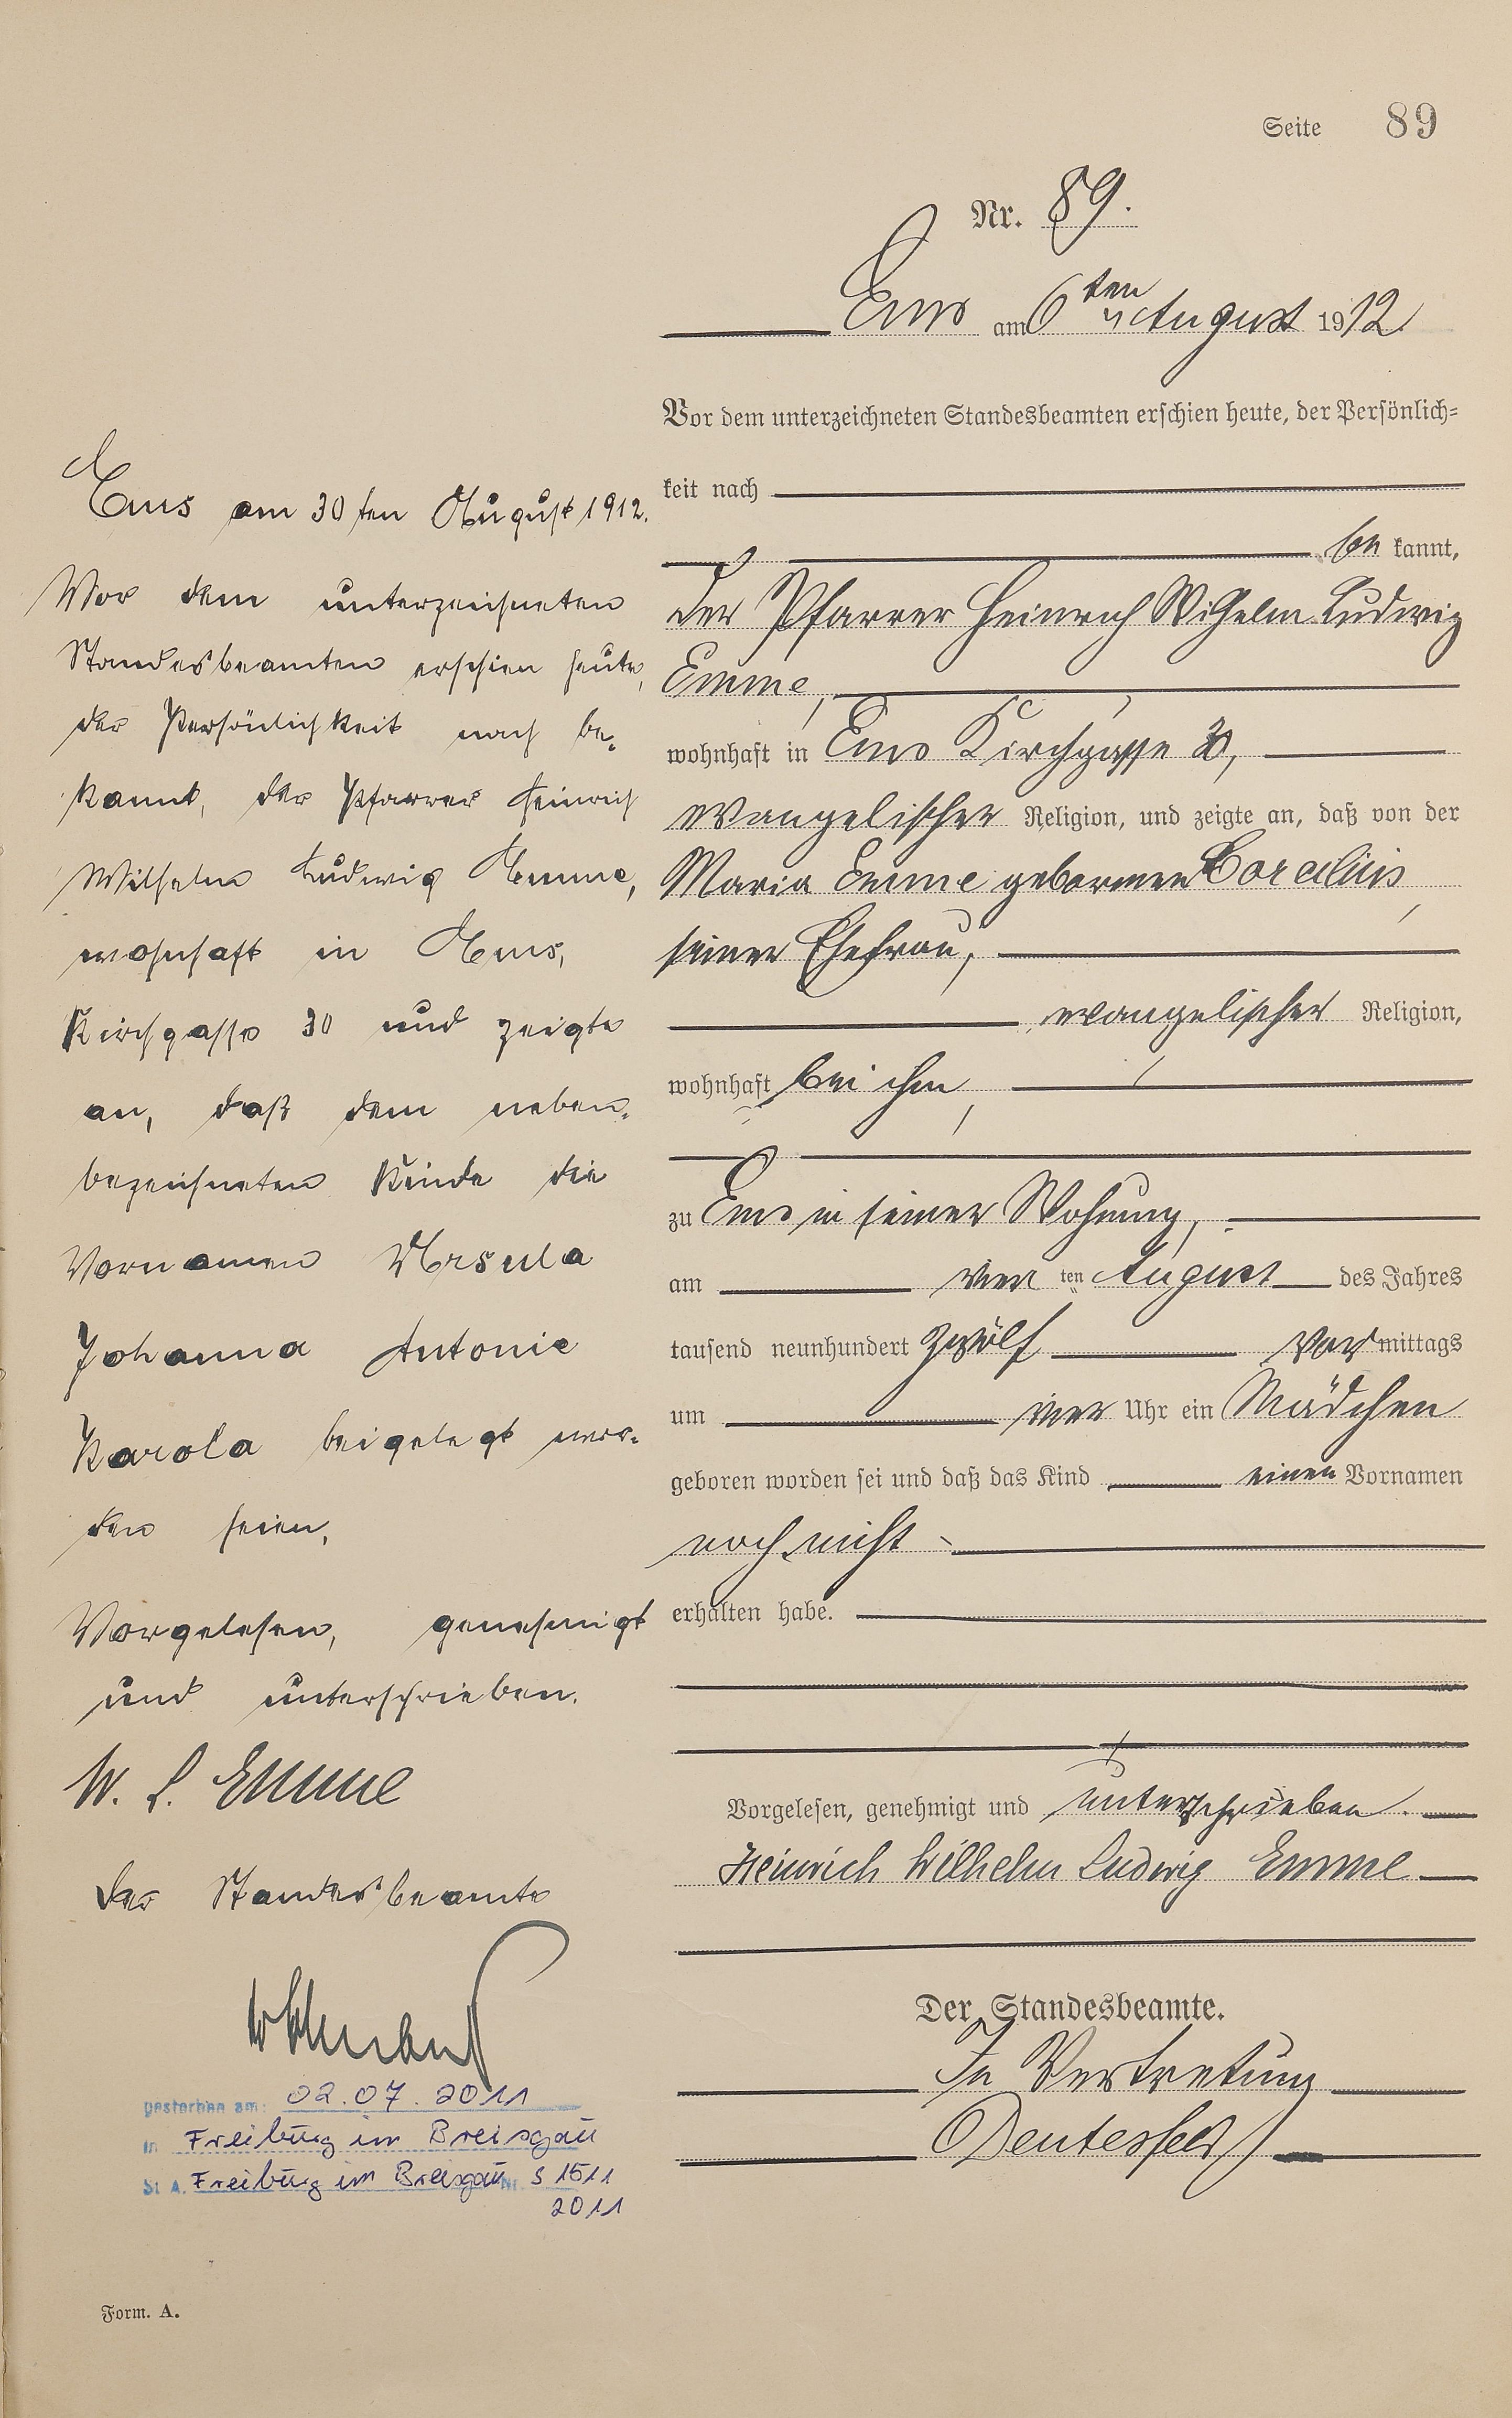 Seite 89
Nr. 89.
Ems am 6ten August 1912
Vor dem unterzeichneten Standesbeamten erschien heute, der Persönlich-
keit nach
be kannt,
der Pfarrer Heinrich Wilhelm Ludwig
Emme,
wohnhaft in Ems Kirchgasse 30,
evangelischer Religion, und zeigte an, daß von der
Maria Emme geborenen Corcilius,
seiner Ehefrau,
evangelischer Religion,
wohnhaft bei ihm,
zu Ems in seiner Wohnung,
am vier ten August des Jahres
tausend neunhundert zwölf vor mittags
um vier Uhr ein Mädchen
geboren worden sei und daß das Kind einen Vornamen
noch nicht
erhalten habe.
Vorgelesen, genehmigt und unterschrieben.
Heinrich Wilhelm Ludwig Emme
Der Standesbeamte.
In Vertretung
Ems am 30ten August 1912.
Vor dem unterzeichneten
Standesbeamten erschien heute,
der Persönlichkeit nach be-
kannt, der Pfarrer Heinrich
Wilhelm Ludwig Emme,
wohnhaft in Ems,
Kirchgasse 30 und zeigte
an, daß dem neben-
bezeichneten Kinde die
Vornamen Ursula
Johanna Antonie
Karola beigelegt wor-
den seien.
Vorgelesen, genehmigt
und unterschrieben.
W. L. Emme
Der Standesbeamte
gestorben am: 02.07.2011
in Freiburg im Breisgau
St. A. Freiburg im Breisgau Nr. S 1511
2011
Form. A.